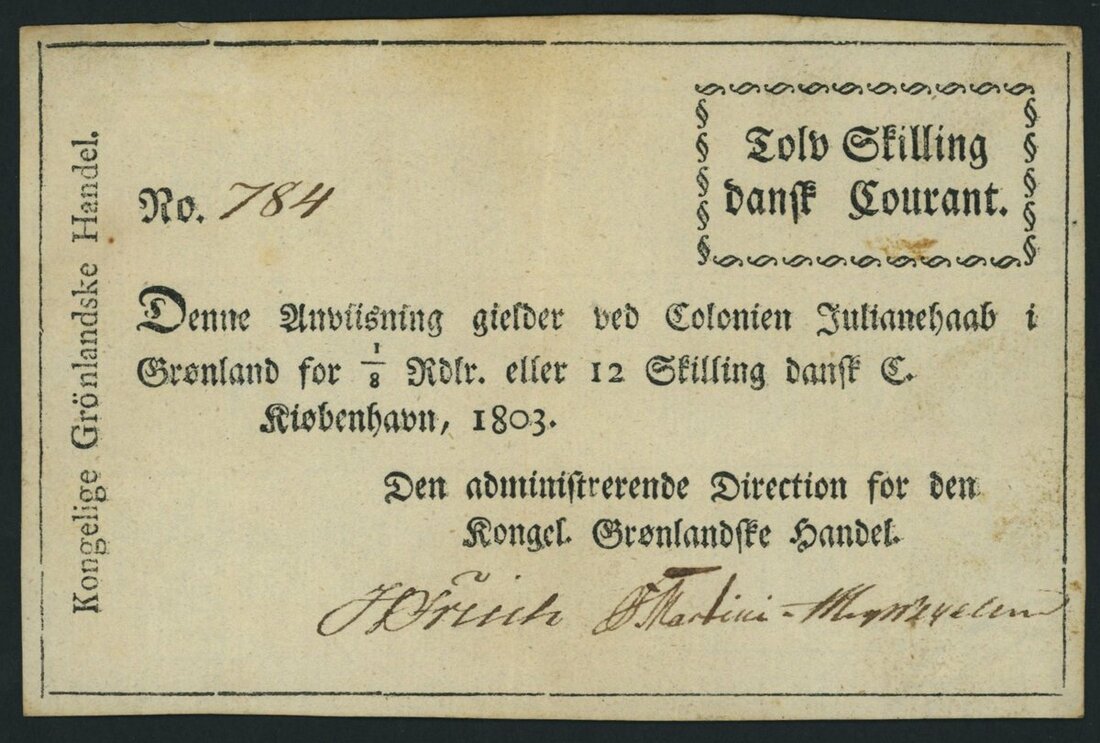 Kongelige Grönlandske Handel.
Tolv Skilling
dansk Courant.
No. 784
Denne Anviisning gielder ved Colonien Julianehaab i
Grønland for 1/8 Rdlr. eller 12 Skilling dansk C.
Kiøbenhavn, 1803.
Den administrerende Direction for den
Kongel. Grønlandske Handel.
Martini